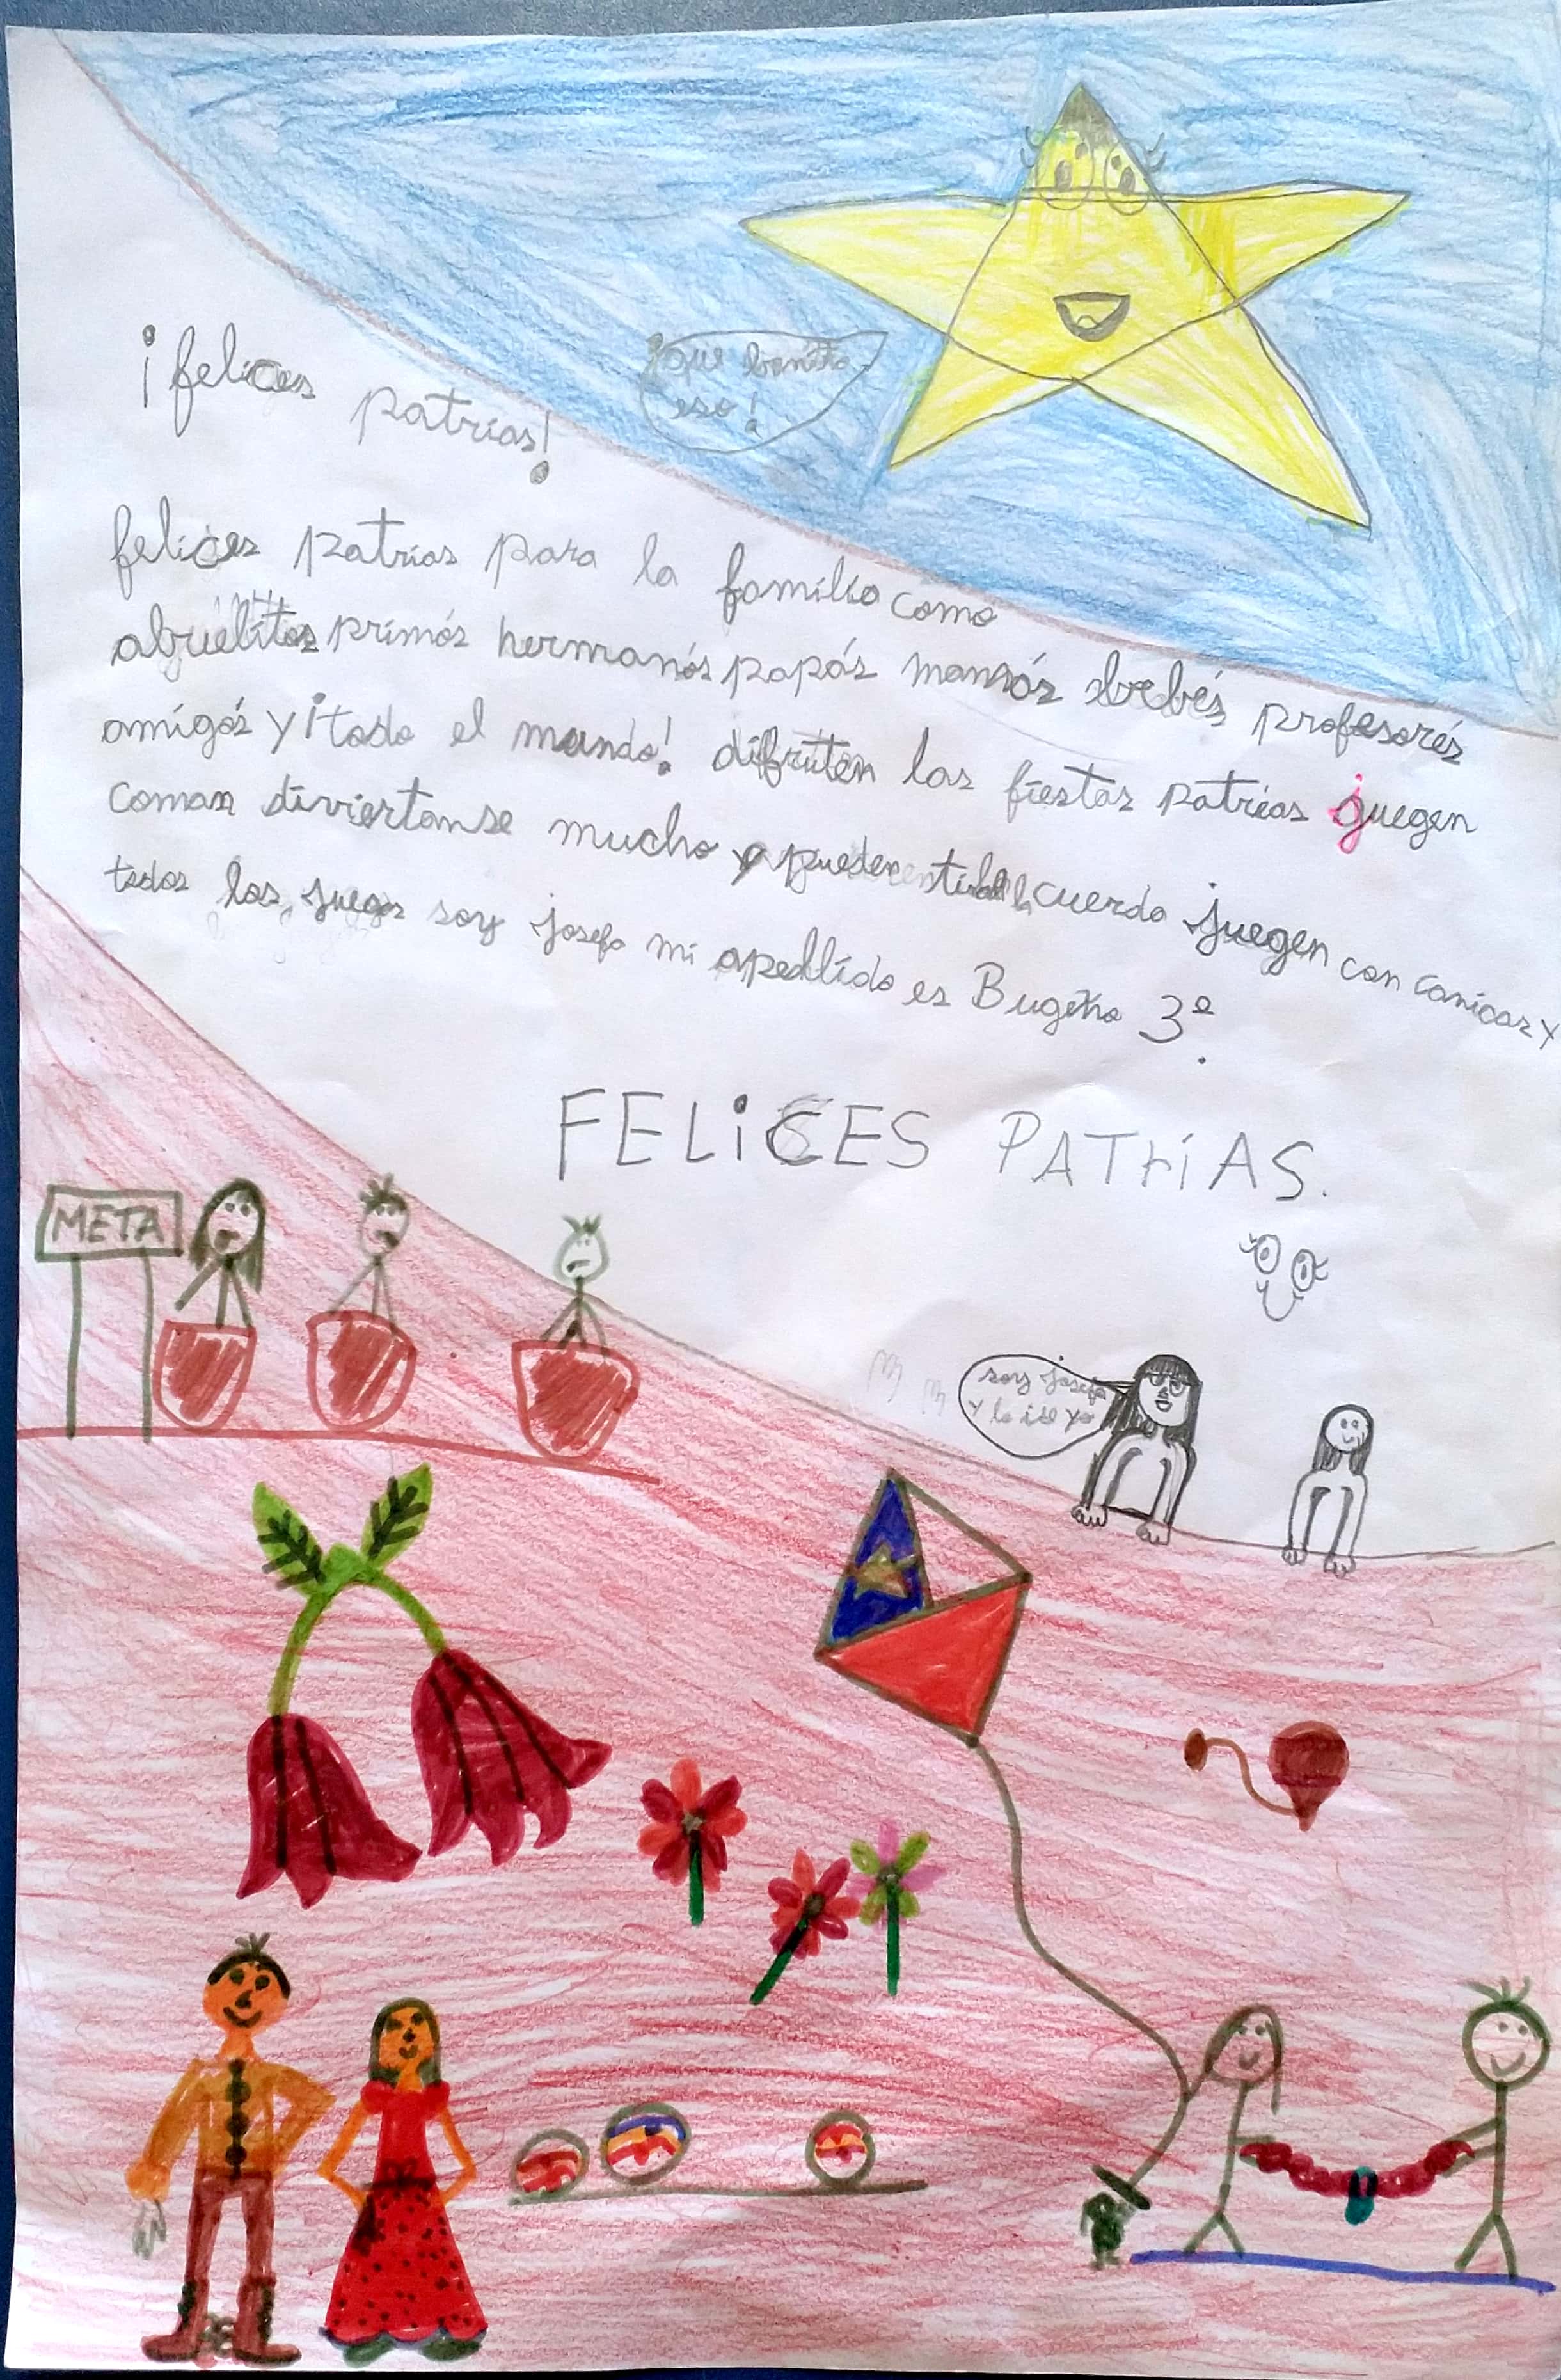 ¡que bonito
eso!
¡felices patrias!
felices patrias para la familia como
abuelitos primós hermanós papás mamás bebés profesorés
amigós y ¡todo el mundo! difruten las fiestas patrias juegen
coman diviertanse mucho y pueden tirar la cuerda juegen con canicas y
todos los juegos soy josefa mi apedllido es 3º.
FELiCES PATríAS.
META
soy josefa
y lo ise yo